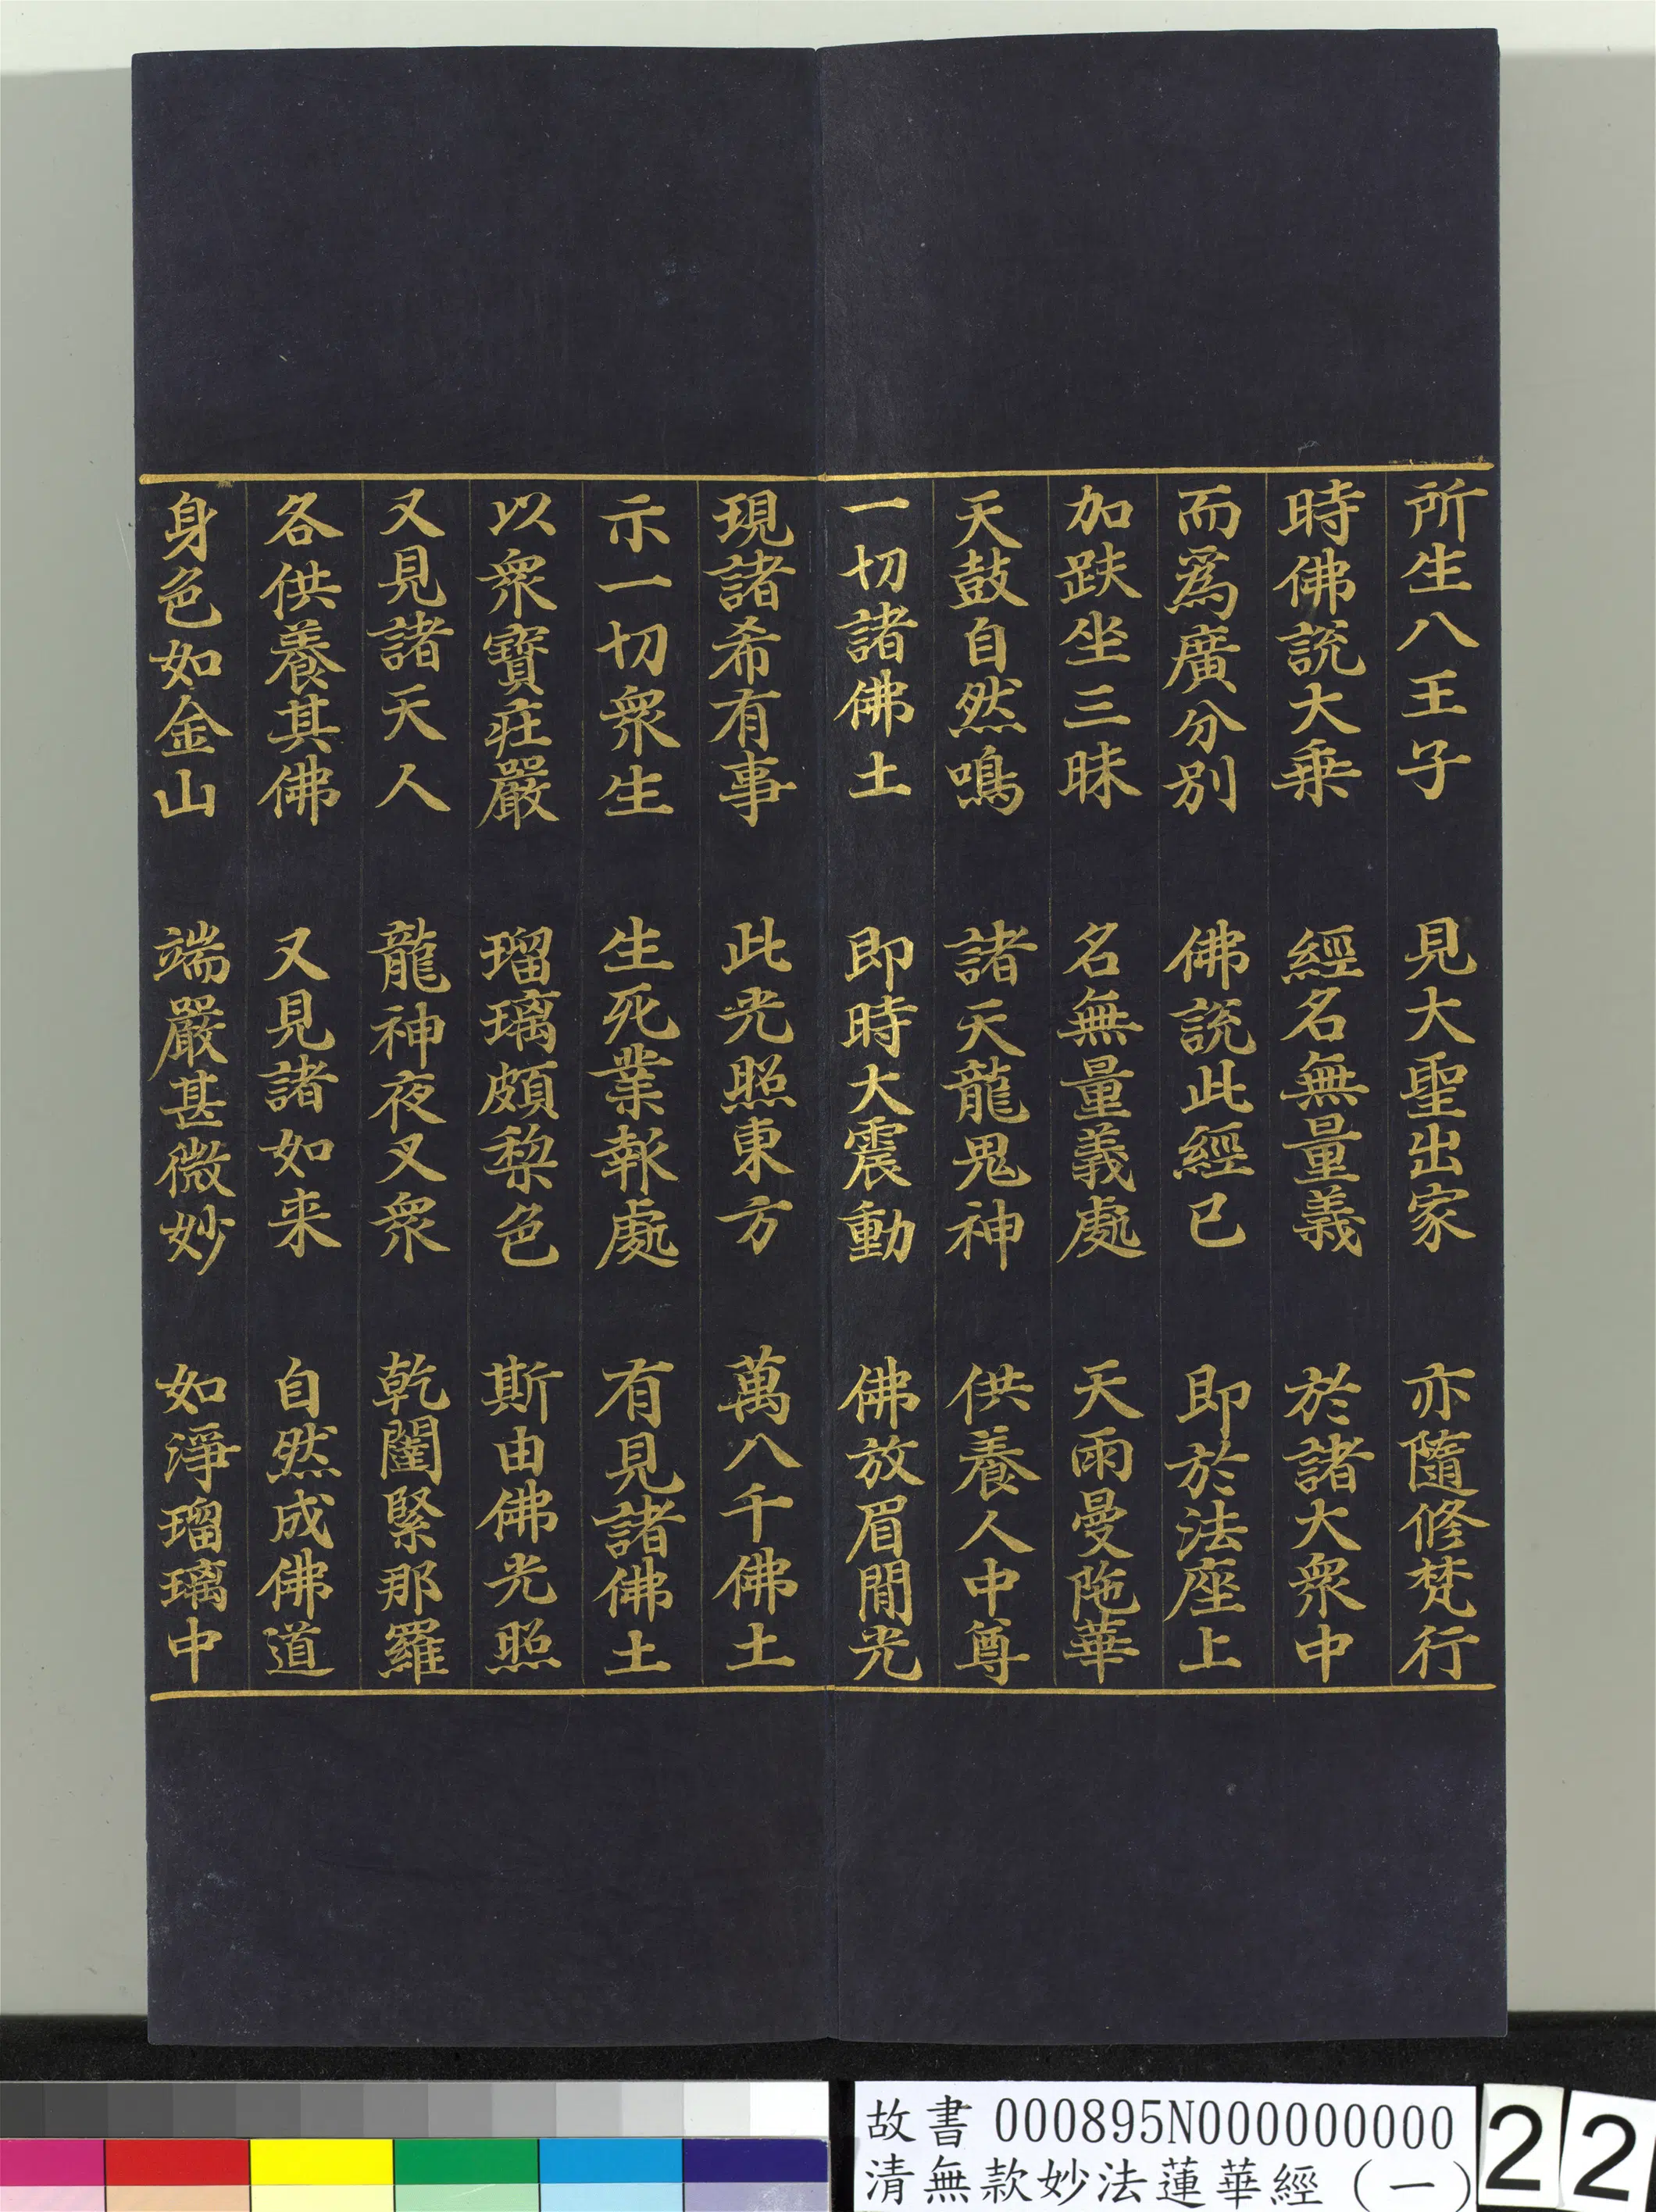 所生八王子　見大聖出家　亦隨修梵行
時佛説大乗　經名無量義　於諸大衆中
而爲廣分別　佛説此經已　即於法座上
加趺坐三昧　名無量義處　天雨曼陁華
天鼓自然鳴　諸天龍鬼神　供養人中尊
一切諸佛土　即時大震動　佛放眉閒光
現諸希有事　此光照東方　萬八千佛土
示一切衆生　生死業報處　有見諸佛土
以衆寶莊嚴　瑠璃頗梨色　斯由佛光照
又見諸天人　龍神夜叉衆　乾闥緊那羅
各供養其佛　又見諸如来　自然成佛道
身色如金山　端嚴甚微妙　如淨瑠璃中
故書 000895N000000000
清無款妙法蓮華經（一）
22